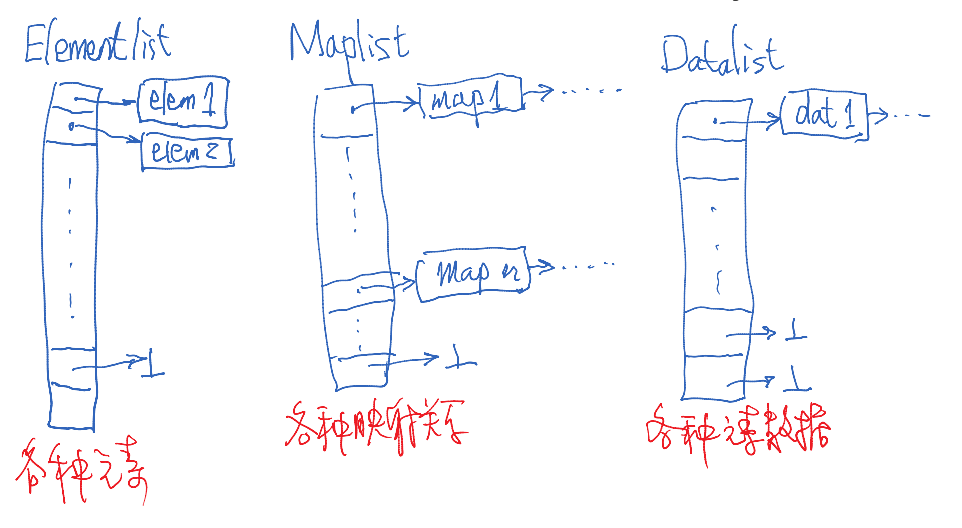 Elementlist
elem1
elem2
各种元素
Maplist
map1
map n
各种映射关系
Datalist
dat1
各种元素数据